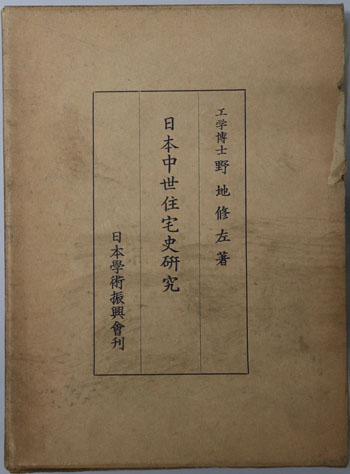 工学博士 野地修左著
日本中世住宅史研究
日本學術振興會刊